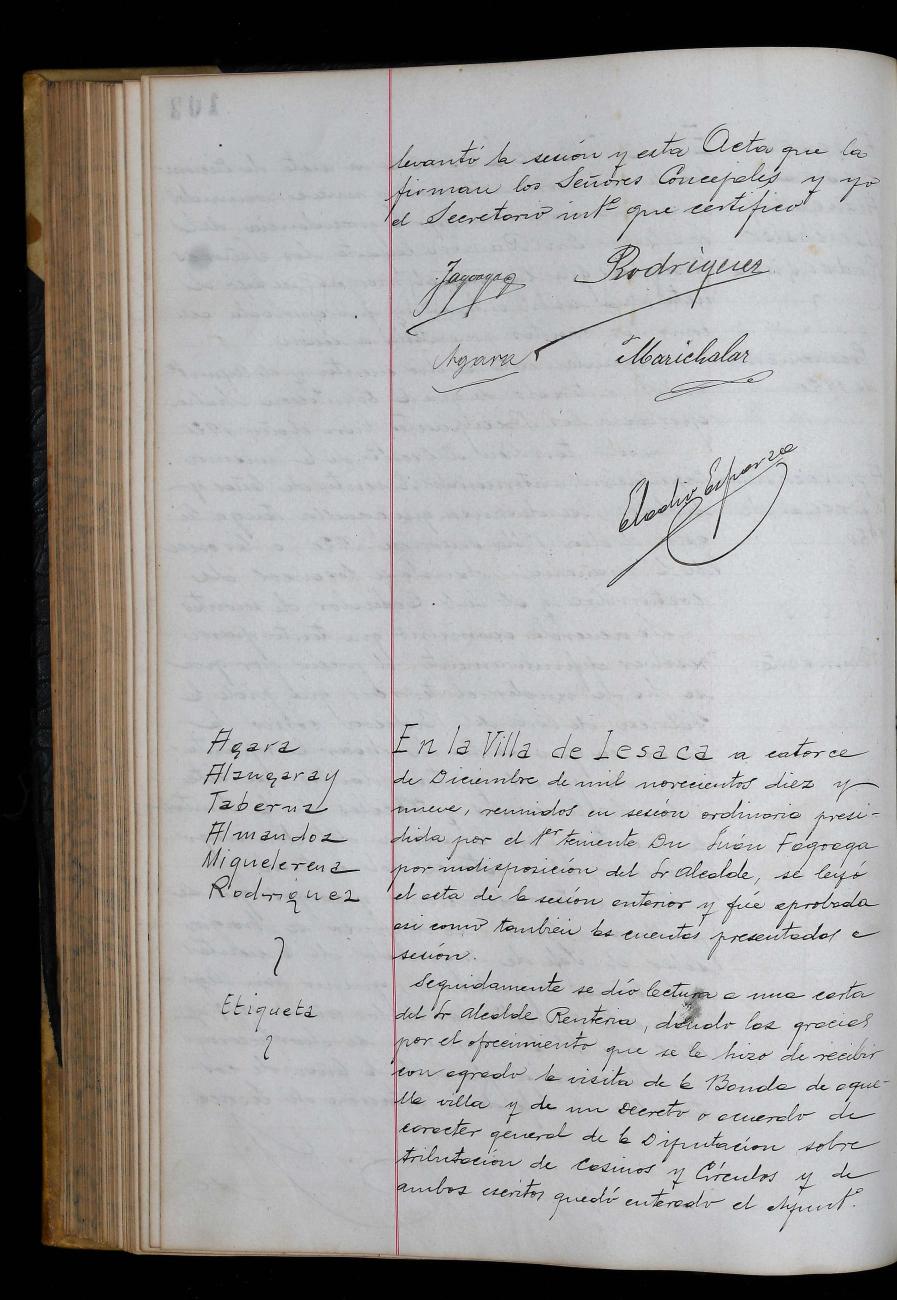 levantó la sesión y esta Acta que la
firman los Señores Concejales y yo
el Secretario intº que certifico
Fagoaga Rodriguez
Agara Marichalar
Eladio Esparza
Agara
Alzugaray
Taberna
Almandoz
Miguelerena
Rodriguez
En la Villa de Lesaca a catorce
de Diciembre de mil novecientos diez y
nueve, reunidos en sesión ordinaria presi-
dida por el 1er teniente Dn Juán Fagoaga
por indisposición del Sr Alcalde, se leyó
el acta de la sesión anterior y fué aprobada
asi como tambien las cuentas presentadas a
sesión.
Etiqueta
Seguidamente se dió lectura a una carta
del Sr Alcalde Renteria, dando las gracias
por el ofrecimiento que se le hizo de recibir
con agrado la visita de la Banda de aque-
lla villa y de un Decreto o acuerdo de
caracter general de la Diputación sobre
tributación de Casinos y Círculos y de
ambos escritos quedó enterado el Ayuntº.